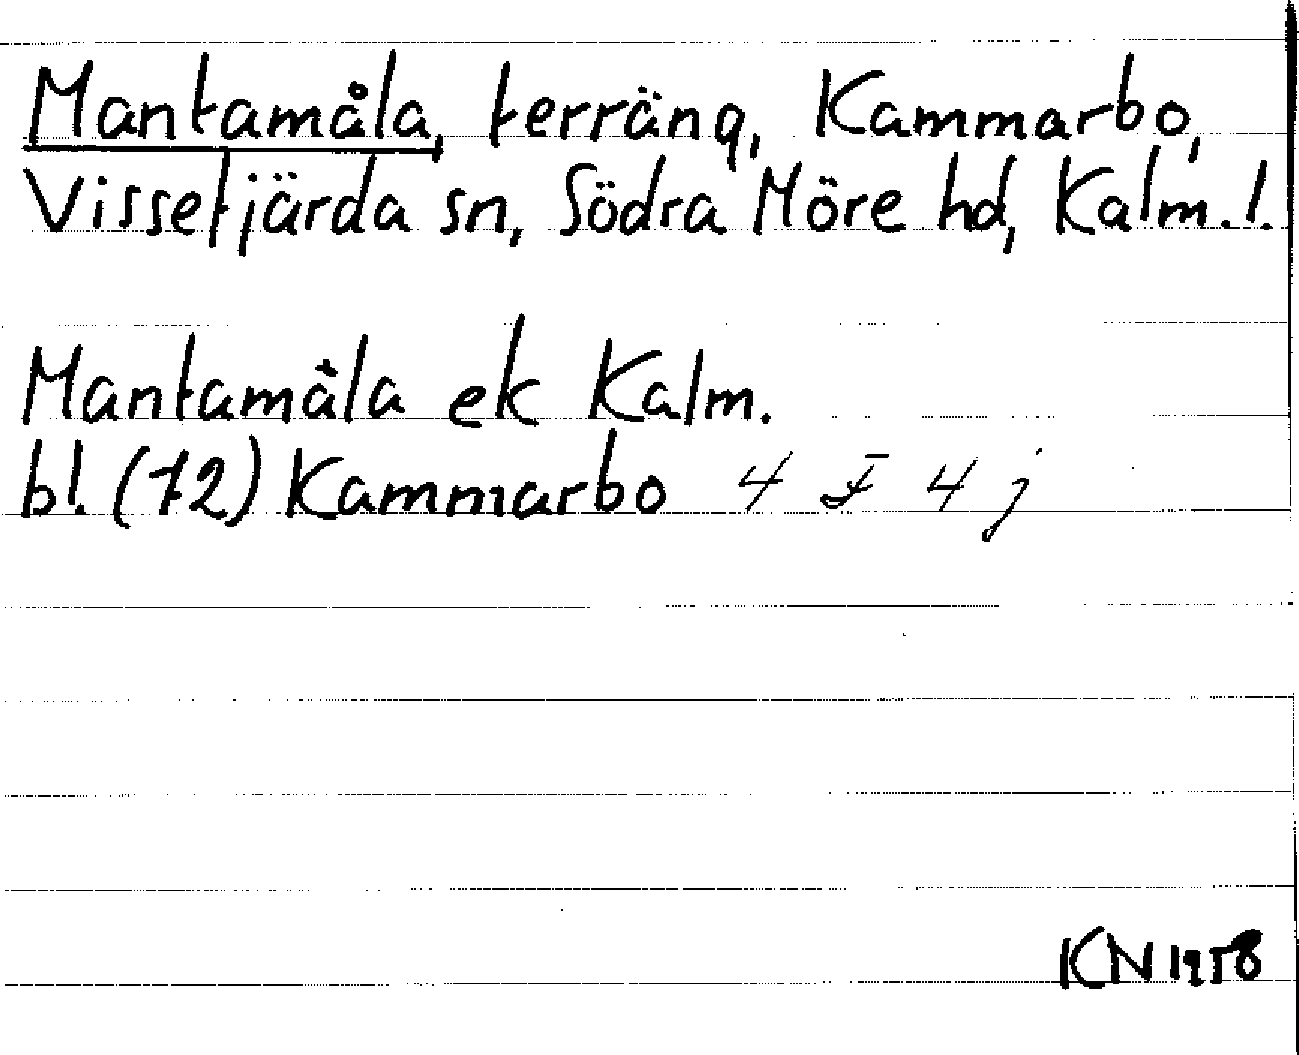 Mantamåla, terräng, Kammarbo,
Vissefjärda sn, Södra Möre hd, Kalm.l.
Mantamåla ek Kalm.
bl. (72) Kammarbo 4 F 4 j
KN 1958